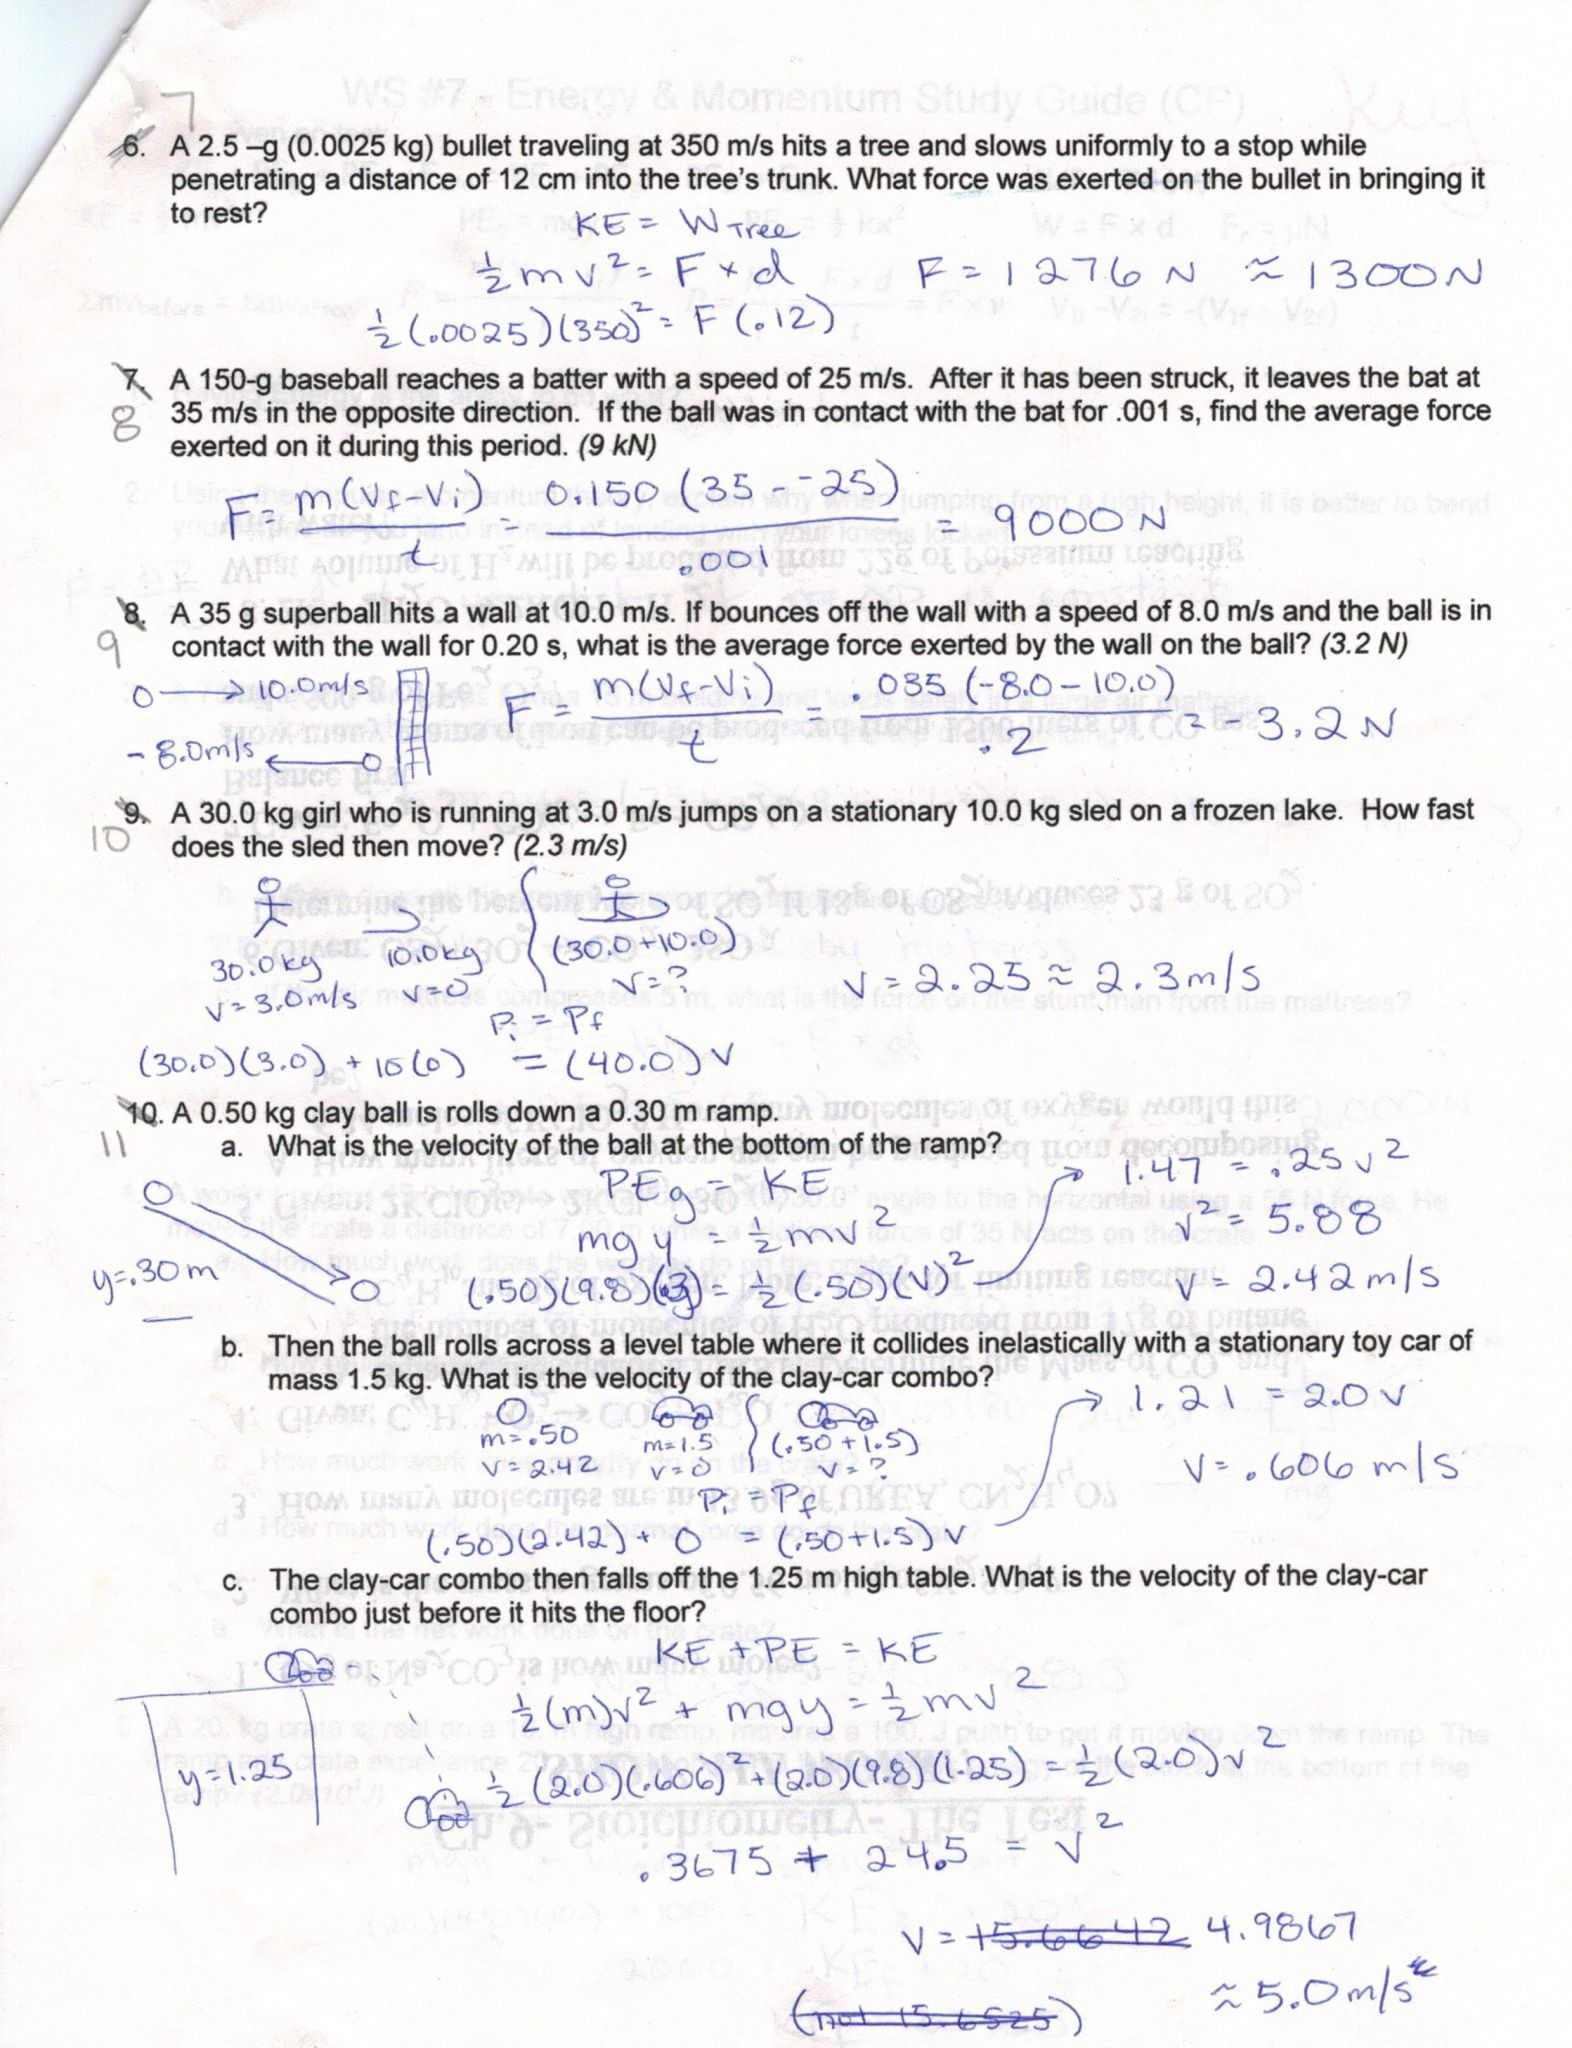 WS #7 - Energy & Momentum Study Guide (CP)
Key
7
6. A 2.5 –g (0.0025 kg) bullet traveling at 350 m/s hits a tree and slows uniformly to a stop while
penetrating a distance of 12 cm into the tree's trunk. What force was exerted on the bullet in bringing it
to rest?
KE = W Tree
½ m v² = F x d
F = 1276 N ≈ 1300N
½ (.0025)(350)² = F (.12)
7. A 150-g baseball reaches a batter with a speed of 25 m/s. After it has been struck, it leaves the bat at
8
35 m/s in the opposite direction. If the ball was in contact with the bat for .001 s, find the average force
exerted on it during this period. (9 kN)
F = m(Vf-Vi) / t = 0.150 (35 - -25) / .001 = 9000 N
8. A 35 g superball hits a wall at 10.0 m/s. If bounces off the wall with a speed of 8.0 m/s and the ball is in
9
contact with the wall for 0.20 s, what is the average force exerted by the wall on the ball? (3.2 N)
10.0m/s
-8.0m/s
F = m(Vf-Vi) / t = .035 (-8.0 - 10.0) / .2 = -3.2 N
9. A 30.0 kg girl who is running at 3.0 m/s jumps on a stationary 10.0 kg sled on a frozen lake. How fast
10
does the sled then move? (2.3 m/s)
30.0kg 10.0kg (30.0+10.0)
v=3.0m/s v=0 v=?
v = 2.25 ≈ 2.3m/s
Pi = Pf
(30.0)(3.0) + 10(0) = (40.0) v
10. A 0.50 kg clay ball is rolls down a 0.30 m ramp.
11
a. What is the velocity of the ball at the bottom of the ramp?
y=.30m
PEg = KE
mg y = ½ mv²
(.50)(9.8)(.3) = ½ (.50)(v)²
1.47 = .25 v²
v² = 5.88
v = 2.42 m/s
b. Then the ball rolls across a level table where it collides inelastically with a stationary toy car of
mass 1.5 kg. What is the velocity of the clay-car combo?
m=.50 m=1.5 (.50+1.5)
v=2.42 v=0 v=?
Pi = Pf
(.50)(2.42) + 0 = (.50+1.5) v
1.21 = 2.0 v
v = .606 m/s
c. The clay-car combo then falls off the 1.25 m high table. What is the velocity of the clay-car
combo just before it hits the floor?
y=1.25
KE + PE = KE
½(m)v² + mgy = ½ mv²
½ (2.0)(.606)² + (2.0)(9.8)(1.25) = ½ (2.0) v²
.3675 + 24.5 = v²
v = 4.9867
≈ 5.0m/s